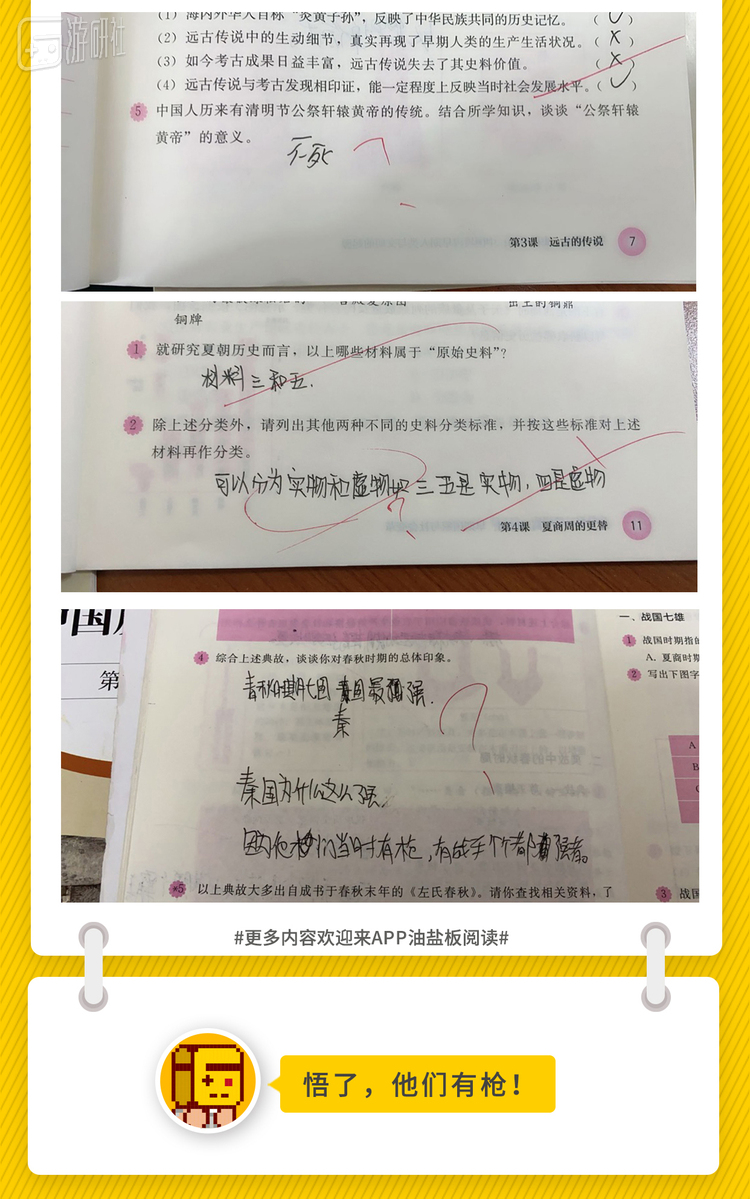 游研社
(1) 海内外华人自称“炎黄子孙”，反映了中华民族共同的历史记忆。 ( ✓ )
(2) 远古传说中的生动细节，真实再现了早期人类的生产生活状况。 ( × )
(3) 如今考古成果日益丰富，远古传说失去了其史料价值。 ( × )
(4) 远古传说与考古发现相印证，能一定程度上反映当时社会发展水平。 ( ✓ )
5 中国人历来有清明节公祭轩辕黄帝的传统。结合所学知识，谈谈“公祭轩辕
黄帝”的意义。
不死
第3课 远古的传说 7
出土的铜鼎
铜牌
1 就研究夏朝历史而言，以上哪些材料属于“原始史料”？
材料三和五.
2 除上述分类外，请列出其他两种不同的史料分类标准，并按这些标准对上述
材料再作分类。
可以分为实物和虚物 三 五是实物，四是虚物
第4课 夏商周的更替 11
中国
第
4 综合上述典故，谈谈你对春秋时期的总体印象。
春秋时期七国 秦国最强.
秦
秦国为什么这么强
因为他们当时有枪，有战车个个都强着。
*5 以上典故大多出自成书于春秋末年的《左氏春秋》。请你查找相关资料，了
一、战国七雄
1 战国时期指的
A. 夏商时期
2 写出下图字
A
B
C
3 战国
#更多内容欢迎来APP油盐板阅读#
悟了，他们有枪！